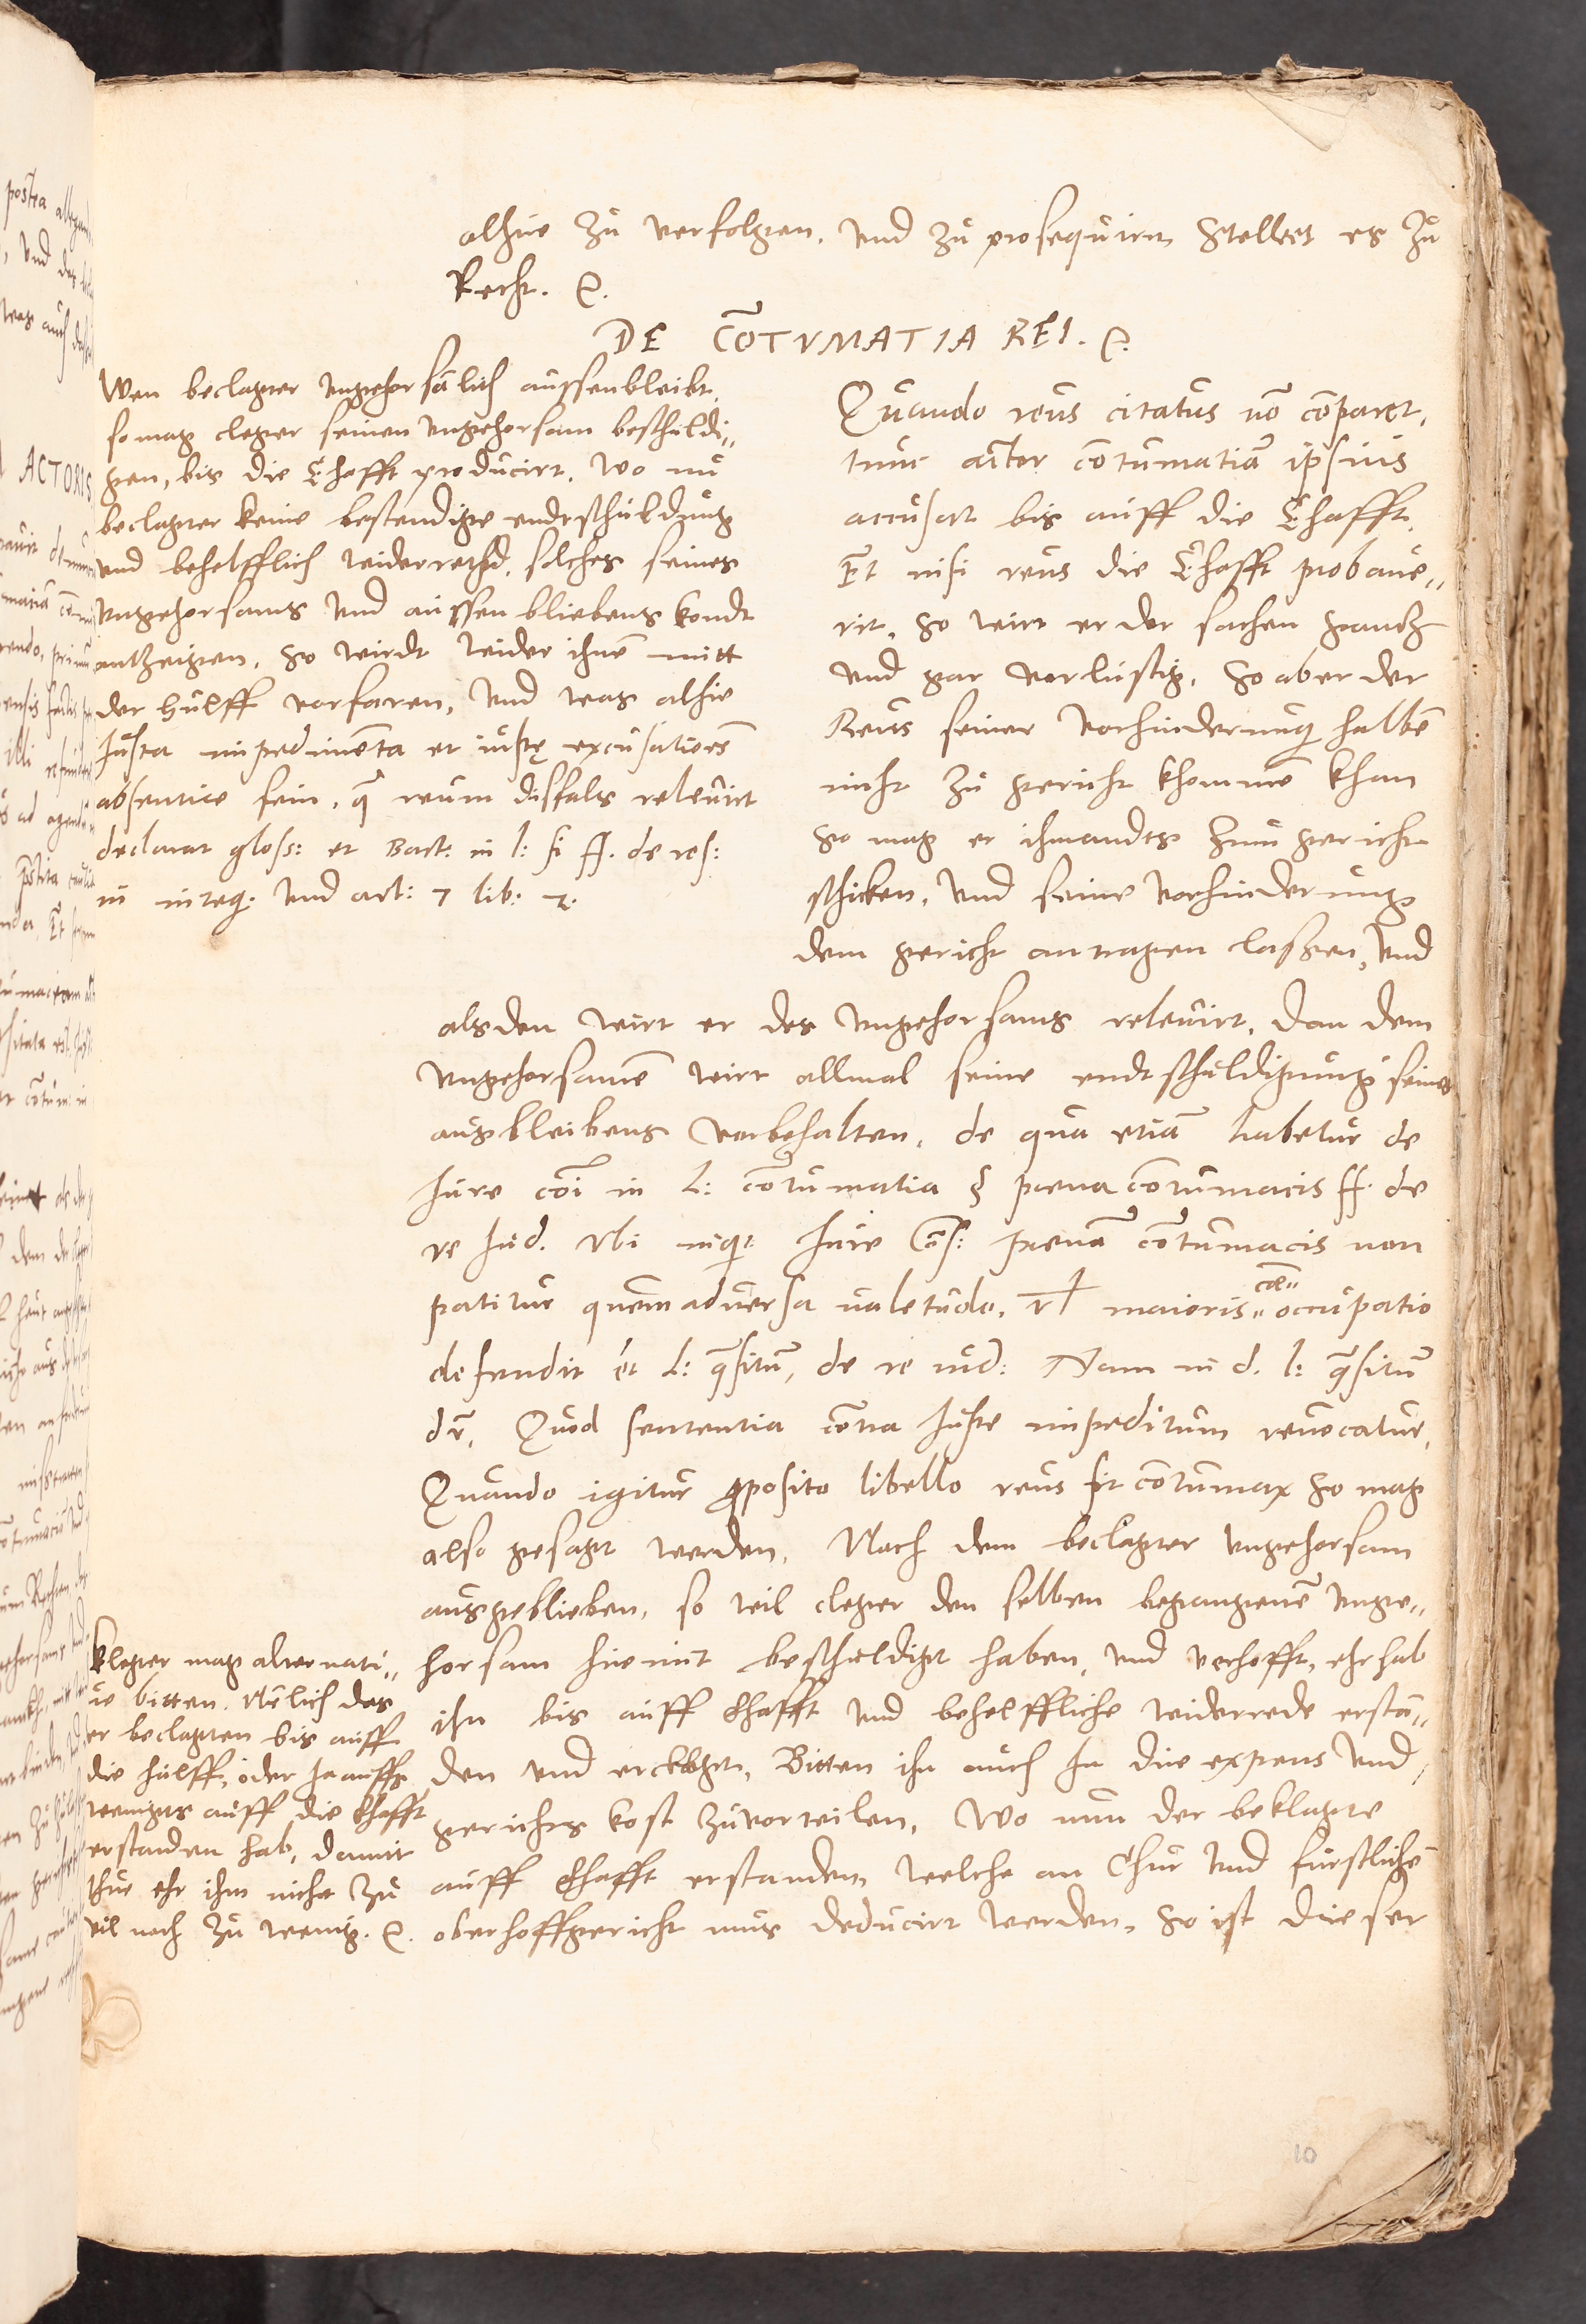 alhie zu verfolgen. vnd zu prosequirn Stellett es zu
Recht. &.
DE CO͞TVMATIA REI. &.
Wen beclagter vngehorsālich aussenbleibt,
so mag cleger seinen vngehorsam beschuldi„
gen, bis die Ehafft producirt. Wo nu
beclagter keine bestendige endtschuldung
vnd behelfflich widerrethd, solches seines
vngehorsams vnd aussen bliebens kondt
anthzeigen, So wirdt wider ihnē mitt
der hulff vorfaren, vnd was alhie
Justa impedimēta et iustę excusatioēs
absentiæ sein, q̄ reum disfals relevirt
declarat gloss: et Bart: in l: si ff. de res:
in integ: vnd art: 7 lib: 7.
Quando reus citatus nō cōparet,
tunc actor cōtumatiā ipsius
accusat bis auff die Ehafft.
Et nisi reus die Ehafft probaue„
rit, So wirt er der sachen gantz
vnd gar vorlustig. So aber der
Reus seiner vorhinderung halbē
nicht zu gericht khommē khan
So mag er ihmandts zum gericht
schicken, vnd seine vorhinderung
dem gericht antragen lassen, vnd
alsden wirt er des vngehorsams relevirt. Dan dem
vngehorsamē wirt allmal seine endtschuldigung seines
ausbleibens vorbehalten, de qua etiā habetur de
Jure cōi in L: cōtumatia § poena cōtumacis ff. de
re Jud. Vbi inq: Jure Cōs: poenā cōtumacis non
patitur quem aduersa ualetudo, vł maioris„ cæ„ occupatio
defendit et L: q̄situ̅, de re iud: Nam in d. l: q̄situ̅
dr̄, Quod sententia cōtra Juste impeditum reuocatur,
Quando igitur proposito libello reus sit cōtumax So mag
also gesagt werden, Nach dem beclagter vngehorsam
ausgeblieben, so wil cleger den selben begangenē vnge„
horsam hiemit beschuldigt haben, vnd verhofft, ehr hab
ihn bis auff Ehafft vnd behelffliche widerrede erstā„
den vnd erclagt, Bitten ihn auch In die expens vnd
gerichts kost zuvorteilen, Wo nun der beklagte
auff Ehafft erstanden, welche an Chur vnd furstlichē
oberhoffgericht mus deducirt werden, So ist dieser
Kleger mag alternati„
ue bitten. Nēlich das
er beclagten bis auff
die hulff, oder Ja auffs
wenigts auff die Ehafft
erstanden hab, damit
thue ehr ihm nicht zu
vil noch zu wenig. &.
10